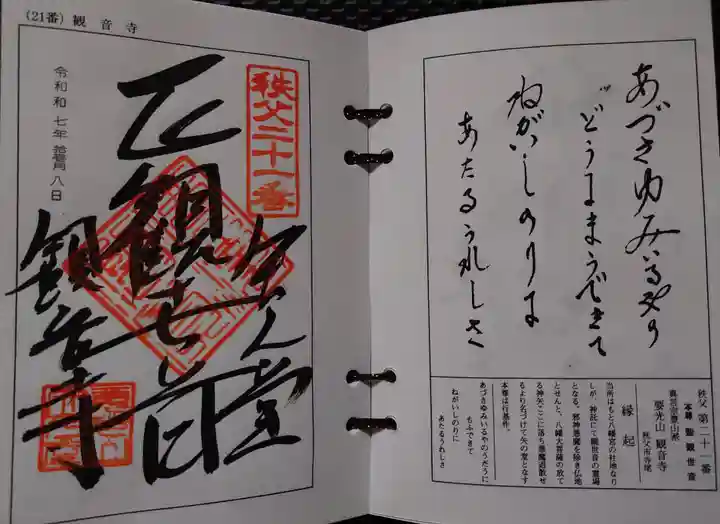 あづさゆみいるやの
どうにまうできて
ねがいしのりに
あたるうれしさ
秩父 第二十一番
本尊 聖観世音
真言宗豊山派
要光山 観音寺
秩父市寺尾
縁起
当所はもと八幡宮の社地なり
しが、神託にて観世音の霊場
となる。邪神悪魔を除き仏地
とせんと、八幡大菩薩の放て
る神矢ここに落ち悪魔退散せ
るより名づけて矢の堂となす
本尊は行基作。
あづさゆみいるやのうだうに
もふできて
ねがいしのりに
あたるうれしさ
(21番) 観音寺
秩父二十一番
正観世音
観音寺
令和 七年 八日